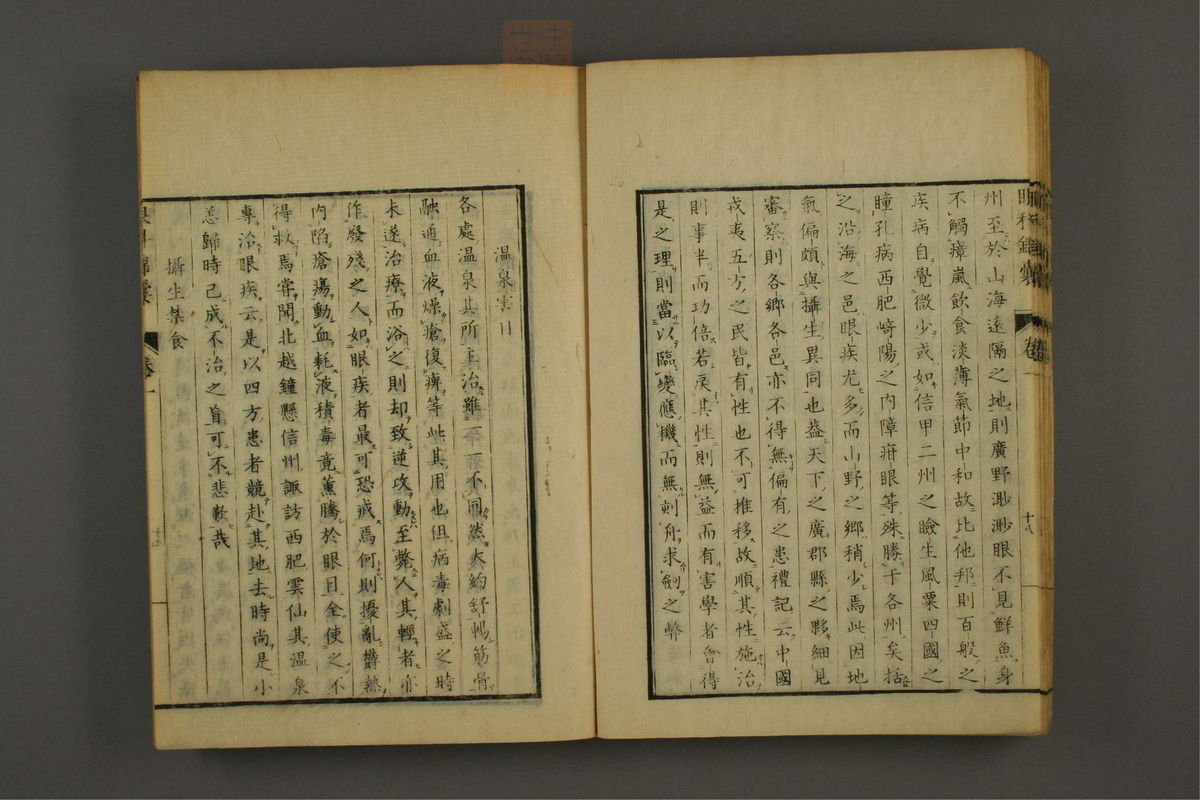 眼科錦囊 卷一 十八
州至於山海遠隔之地則廣野渺渺眼不見鮮魚身
不觸瘴嵐飲食淡薄氣節中和故比他邦則百般之
疾病自覺微少或如信甲二州之瞼生風粟四國之
瞳孔病西肥﨑陽之内障疳眼等殊勝于各州矣括
之沿海之邑眼疾尤多而山野之鄉稍少焉此因地
氣偏頗與攝生異同也蓋天下之廣郡縣之夥細見
審察則各鄉各邑亦不得無偏有之患禮記云中國
戎夷五方之民皆有性也不可推移故順其性施治
則事半而功倍若戾其性則無益而有害學者會得
是之理則當以臨變應機而無刻舟求劍之弊
溫泉害目
各處溫泉其所主治雖不同然大約舒暢筋骨
融通血液燥瘡復痺等此其用也但病毒劇盛之時
未遂治療而浴之則却致逆攻動至斃人其輕者亦
作廢殘之人如眼疾者最可恐戒焉何則擾亂欝熱
内陷瘡瘍動血耗液積毒竟薰騰於眼目全使之不
得救焉甞聞北越鐘懸信州諏訪西肥雲仙其溫泉
專治眼疾云是以四方患者競赴其地去時尚是小
恙歸時已成不治之盲可不悲歎哉
攝生禁食
眼科錦囊 卷一